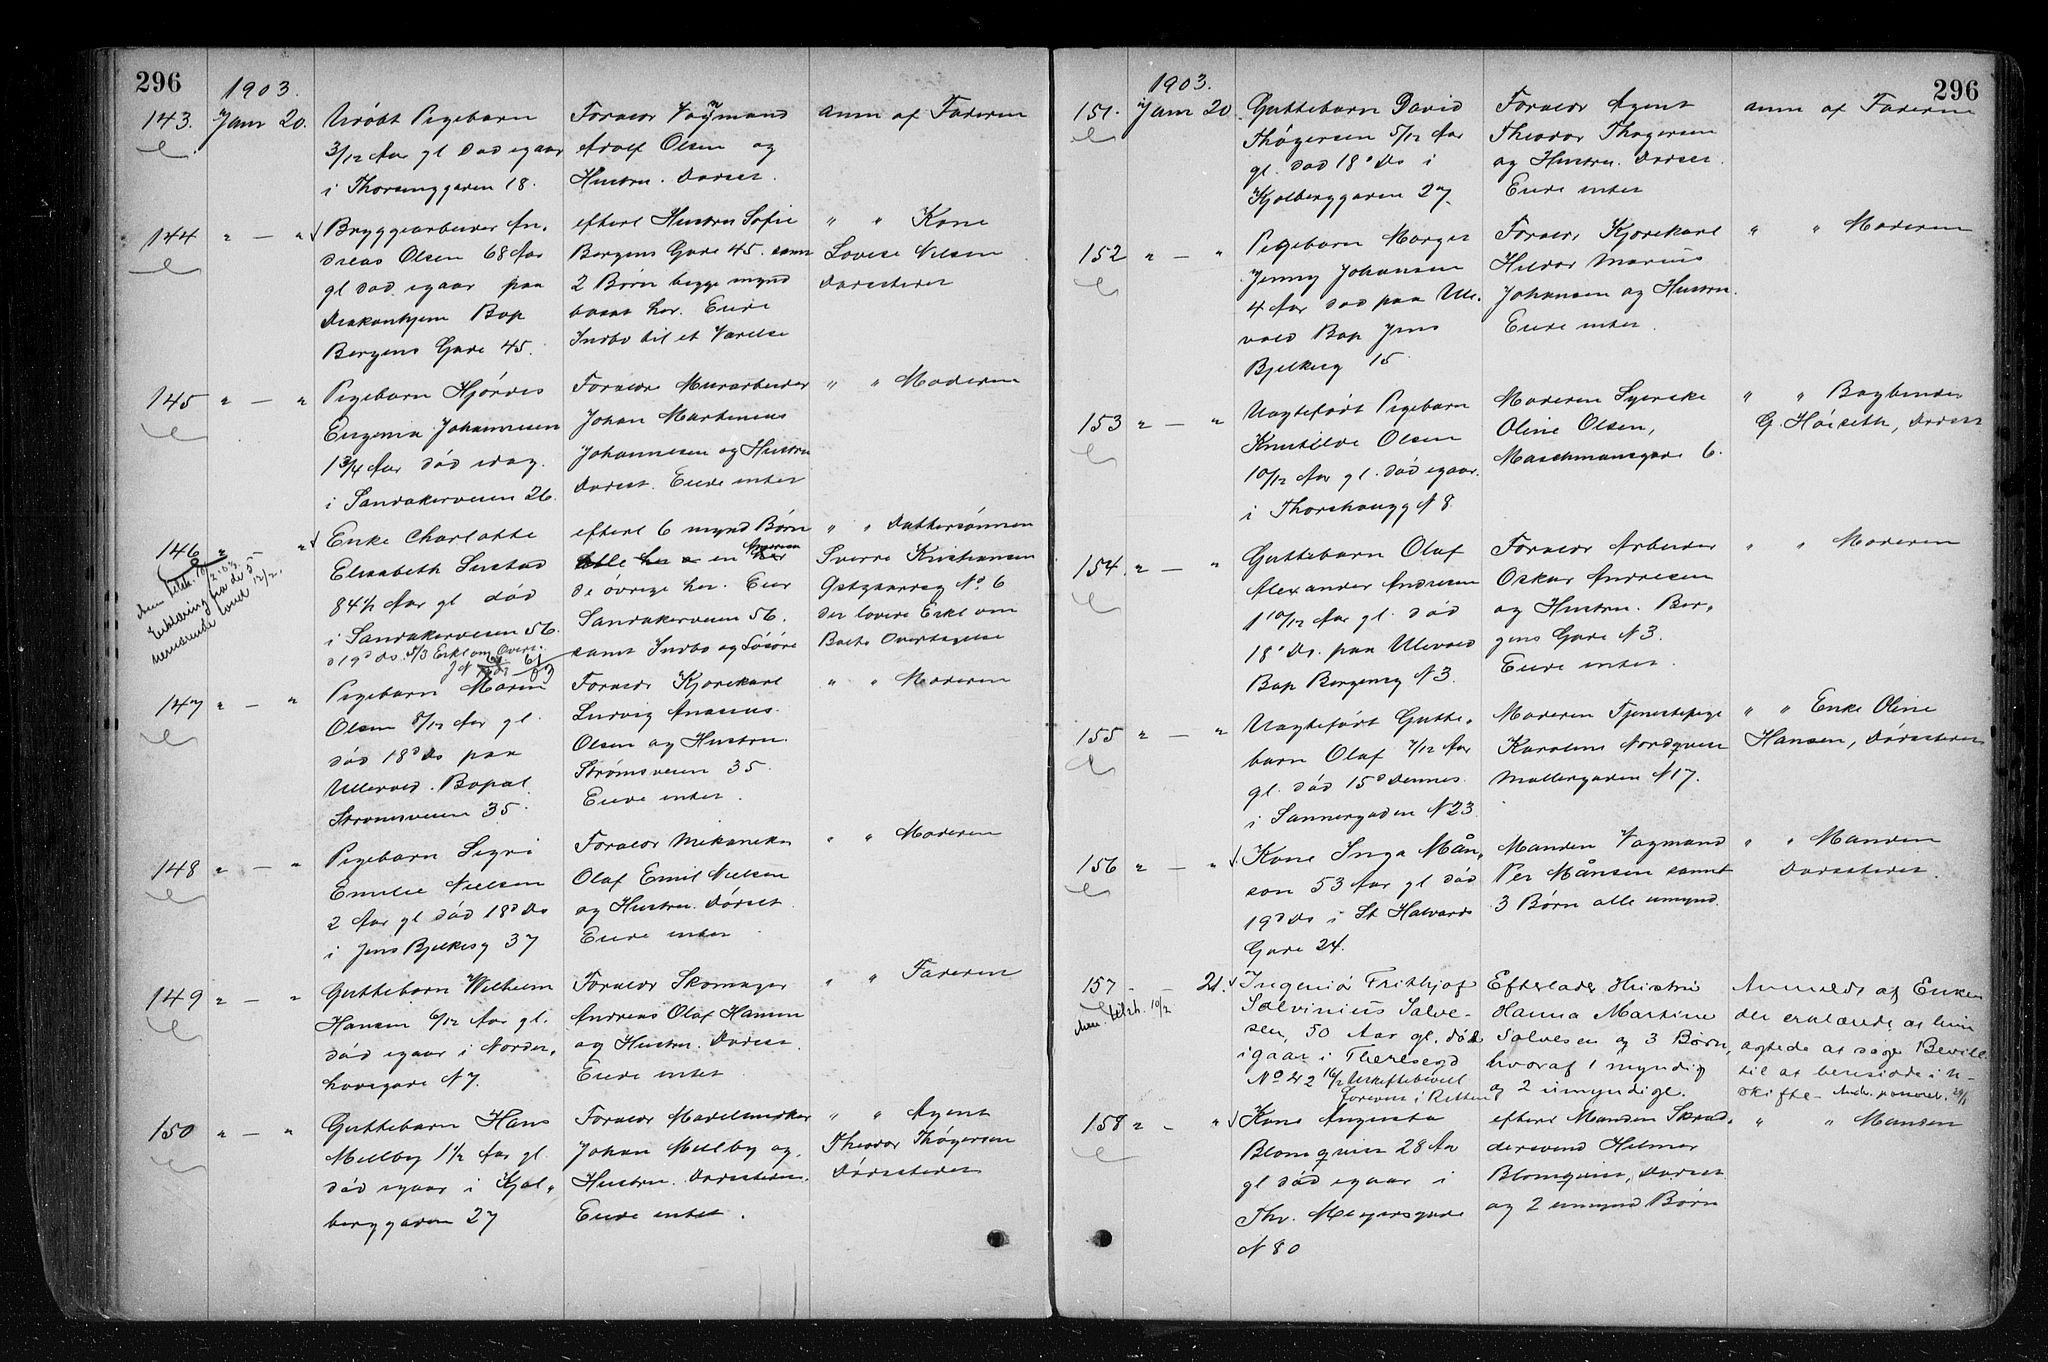 296
1903.
143. Janr 20. Udøbt Pigebarn
3/12 Aar gl død igaar
i Thorsenggaden 18.
Forældr Vognmand
Adolf Olsen og
Hustru. Dødsst.
anm af Faderen
144 " — " Bryggearbeider An-
dreas Olsen 68 Aar
gl død igaar paa
Diakonhjem Bop
Bergens Gade 45.
efterl Hustru Sofie
Bergens Gade 45. samt
2 Børn begge mynd
bosat her. Eiede
Indbo til et Værelse
" " Kone
Lovise Nilsen
Dødsstedet
145 " — " Pigebarn Hjördis
Eugenia Johannesen
1 3/4 Aar död idag
i Sandakerveien 26.
Forældre Murarbeider
Johan Martinius
Johannesen og Hustru
Dødsst. Eiede intet
" " Moderen
146 " " Enke Charlotte
Elisabeth Sustad
84½ Aar gl död
i Sandakerveien 56.
d 19d Ds. 5/3 Erkl om Overt.
efterl 6 mynd Børn
alle her en
de øvrige her. Eier
Sandakerveien 56.
samt Indbo og Løsøre
" " Dattersønnen
Sverre Kristiansen
Østgaardsg No 6
der lovede Erkl om
Boets Overtagelse
Erklæring fra de 5
147 " — " Pigebarn Marie
Olsen 8/12 Aar gl.
död 18d Ds paa
Ullevold. Bopæl
Strømsveien 35.
Forældr Kjørekarl
Ludvig Anasius
Olsen og Hustru.
Strømsveien 35.
Eiede intet.
" " Moderen
148 " — " Pigebarn Sigri
Emilie Nielsen
2 Aar gl død 18d Ds
i Jens Bjelkesg 37
Forældr Mekaniker
Olaf Emil Nielsen
og Hustru. Dödsst.
Eiede intet
" " Moderen
149 " — " Guttebarn Wilhelm
Hansen 6/12 Aar gl.
död igaar i Norder-
hovsgade N 7.
Forældr Skomager
Andreas Olaf Hansen
og Hustru. Dødsst.
Eiede intet
" " Faderen
150 " — " Guttebarn Hans
Melby 1½ Aar gl.
död igaar i Kjøl-
berggaden 27
Forældr Modelsnedker
Johan Melby og
Hustru. Dødsstedet.
Eiede intet.
" " Agent
Theodor Thøgersen
Dødsstedet
296
1903.
151. Janr 20. Guttebarn David
Thøgersen 5/12 Aar
gl. død 18d Ds i
Kjølberggaden 27.
Forældr Agent
Theodor Thøgersen
og Hustru. Dødsst.
Eiede intet
anm af Faderen
152 " — " Pigebarn Margit
Jenny Johansen
4 Aar død paa Ulle-
vold Bop Jens
Bjelkesg 15
Forældr Kjørekarl
Hildor Marius
Johansen og Hustru.
Eiede intet.
" " Moderen
153 " — " Uægtefødt Pigebarn
Knutilde Olsen
10/12 Aar gl. død igaar
i Thorshaugg N 8.
Moderen Syerske
Oline Olsen,
Maschmansgade 6.
" " Bogbinder
G. Høiseth, Dødsst
154. " — " Guttebarn Olaf
Alexander Andresen
1 10/12 Aar gl. død
18d Ds. paa Ullevold
Bop Bergensg N 3.
Forældr Arbeider
Oskar Andresen
og Hustru. Ber-
gens Gade N 3.
Eiede intet.
" " Moderen
155 " — " Uægtefødt Gutte-
barn Olaf 7/12 Aar
gl. död 15d dennes
i Sannergaden N 23.
Moderen Tjenestepige
Karoline Nordqvist
Møllergaden N 17.
" " Enke Oline
Hansen, Dødsstedet
156 " — " Kone Inga Mån-
son 53 Aar gl död
19d Ds i St Halvards
Gade 24.
Manden Vognmand
Per Månsen samt
3 Börn alle umynd.
" " Manden
Dødsstedet.
157 — — 21. Ingeniør Frithjof
Salvinius Salve-
sen, 50 Aar gl. død
igaar i Theresegd
No 42 16/2 Uskiftebevill
forevist i Retten
Efterlader Hustru
Hanna Martine
Salvesen og 3 Børn,
hvoraf 1 myndig
og 2 umyndige.
Anmeldt af Enken
der erklærede at hun
agtede at søge Bevill.
til at besidde i u-
skifte
158 " — " Kone Augusta
Blomqvist 28 Aar
gl död igaar i
Thv. Meyersgade
N 80
efterl Manden Skræd-
dersvend Hilmar
Blomqvist, Dødsst
og 2 umynd Børn
" " Manden